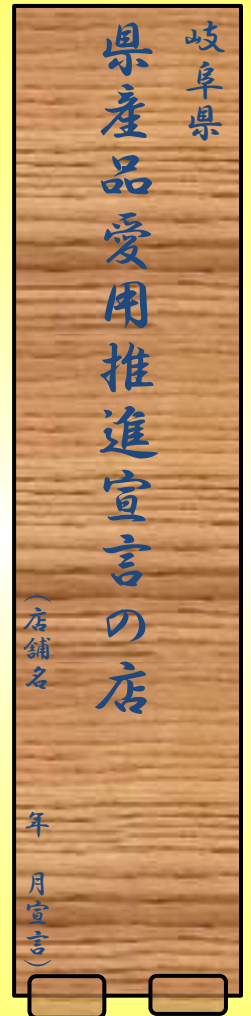 岐阜県
県産品愛用推進宣言の店
（店舗名　　　　年　月宣言）